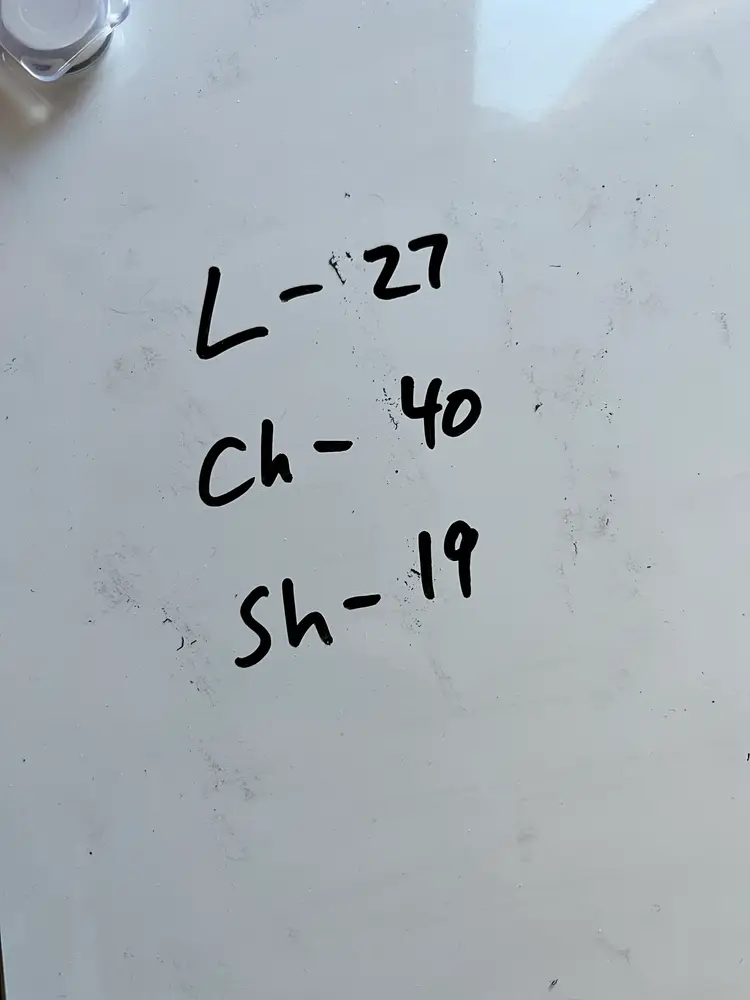 L - 27
Ch - 40
Sh - 19